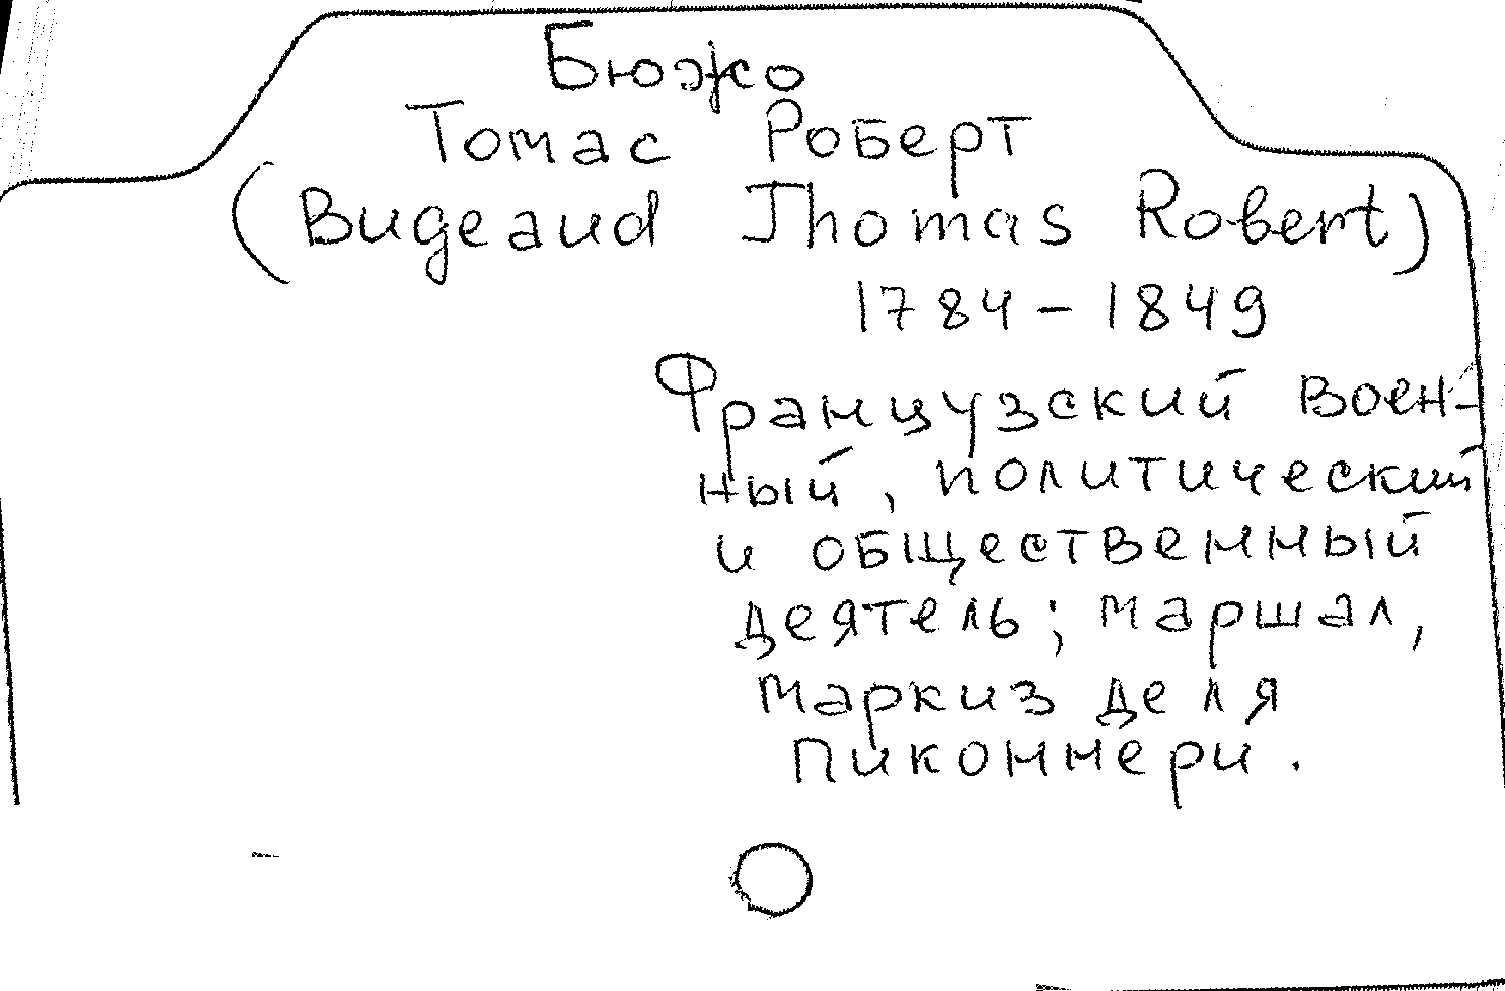 Бюжо
Томас Роберт
(Bugeaud Thomas Robert)
1784-1849
Французский воен-
ный, политический
и общественный
деятель; маршал,
маркиз де ля
пиконнери.